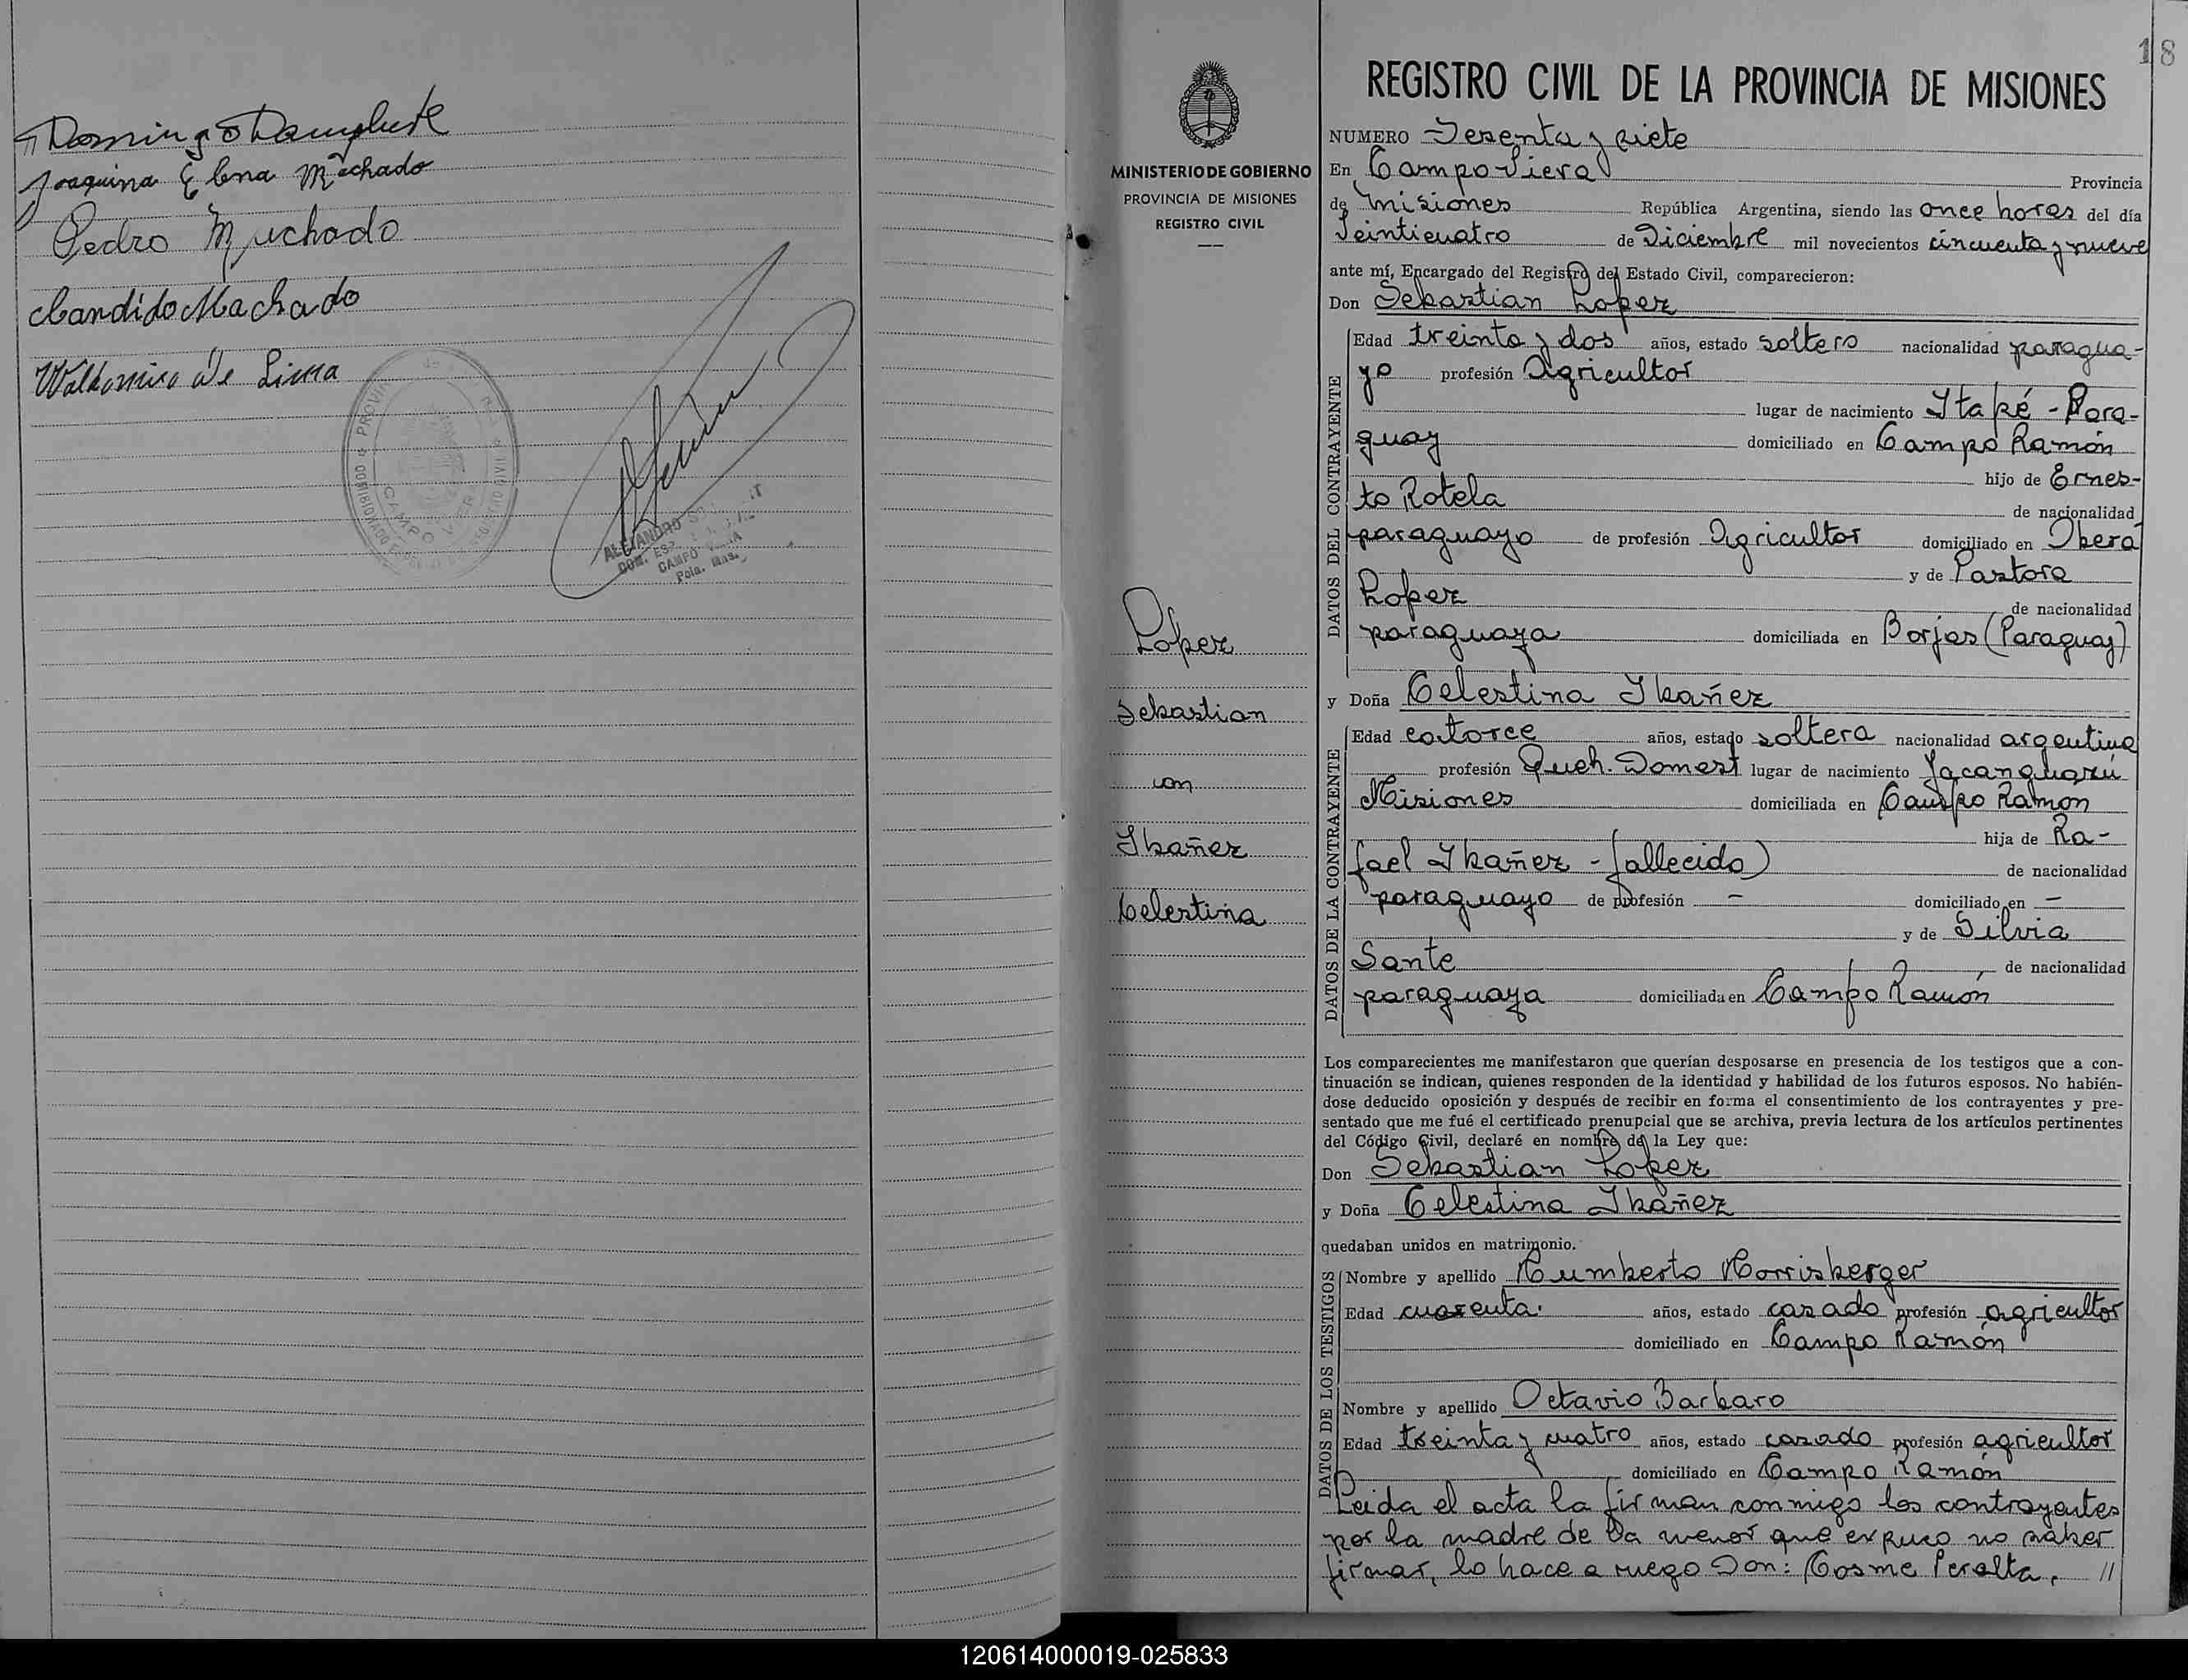 Domingo
Joaquina Elena Machado
Pedro Machado
Candido Machado
Waldomiro de Lima
PROVIN
CAMPO VIER
ALEJANDRO
CAMPO VIERA
Pcia. Mns.
18
MINISTERIO DE GOBIERNO
PROVINCIA DE MISIONES
REGISTRO CIVIL
Lopez
Sebastian
con
Ibañez
Celestina
REGISTRO CIVIL DE LA PROVINCIA DE MISIONES
NUMERO Sesenta y siete
En Campo Viera Provincia
de Misiones República Argentina, siendo las once horas del día
Veinticuatro de Diciembre mil novecientos cincuenta y nueve
ante mí, Encargado del Registro del Estado Civil, comparecieron:
Don Sebastian Lopez
DATOS DEL CONTRAYENTE
Edad treinta y dos años, estado soltero nacionalidad paragua-
yo profesión Agricultor
lugar de nacimiento Itapé - Para-
guay domiciliado en Campo Ramón
hijo de Ernes-
to Rotela de nacionalidad
paraguayo de profesión Agricultor domiciliado en Oberá
y de Pastora
Lopez de nacionalidad
paraguaya domiciliada en Borjas (Paraguay)
y Doña Celestina Ibañez
DATOS DE LA CONTRAYENTE
Edad catorce años, estado soltera nacionalidad argentina
profesión Queh. Domest lugar de nacimiento Yacanguazú
Misiones domiciliada en Campo Ramón
hija de Ra-
fael Ibañez - fallecido) de nacionalidad
paraguayo de profesión - domiciliado en -
y de Silvia
Sante de nacionalidad
paraguaya domiciliada en Campo Ramón
Los comparecientes me manifestaron que querían desposarse en presencia de los testigos que a con-
tinuación se indican, quienes responden de la identidad y habilidad de los futuros esposos. No habién-
dose deducido oposición y después de recibir en forma el consentimiento de los contrayentes y pre-
sentado que me fué el certificado prenupcial que se archiva, previa lectura de los artículos pertinentes
del Código Civil, declaré en nombre de la Ley que:
Don Sebastian Lopez
y Doña Celestina Ibañez
quedaban unidos en matrimonio.
DATOS DE LOS TESTIGOS
Nombre y apellido Humberto Horrisberger
Edad cuarenta. años, estado casado profesión agricultor
domiciliado en Campo Ramón
Nombre y apellido Octavio Barbaro
Edad treinta y cuatro años, estado casado profesión agricultor
domiciliado en Campo Ramón
Leida el acta la firman conmigo los contrayentes
por la madre de la menor que expuso no saber
firmar, lo hace a ruego Don: Cosme Peralta, //
120614000019-025833